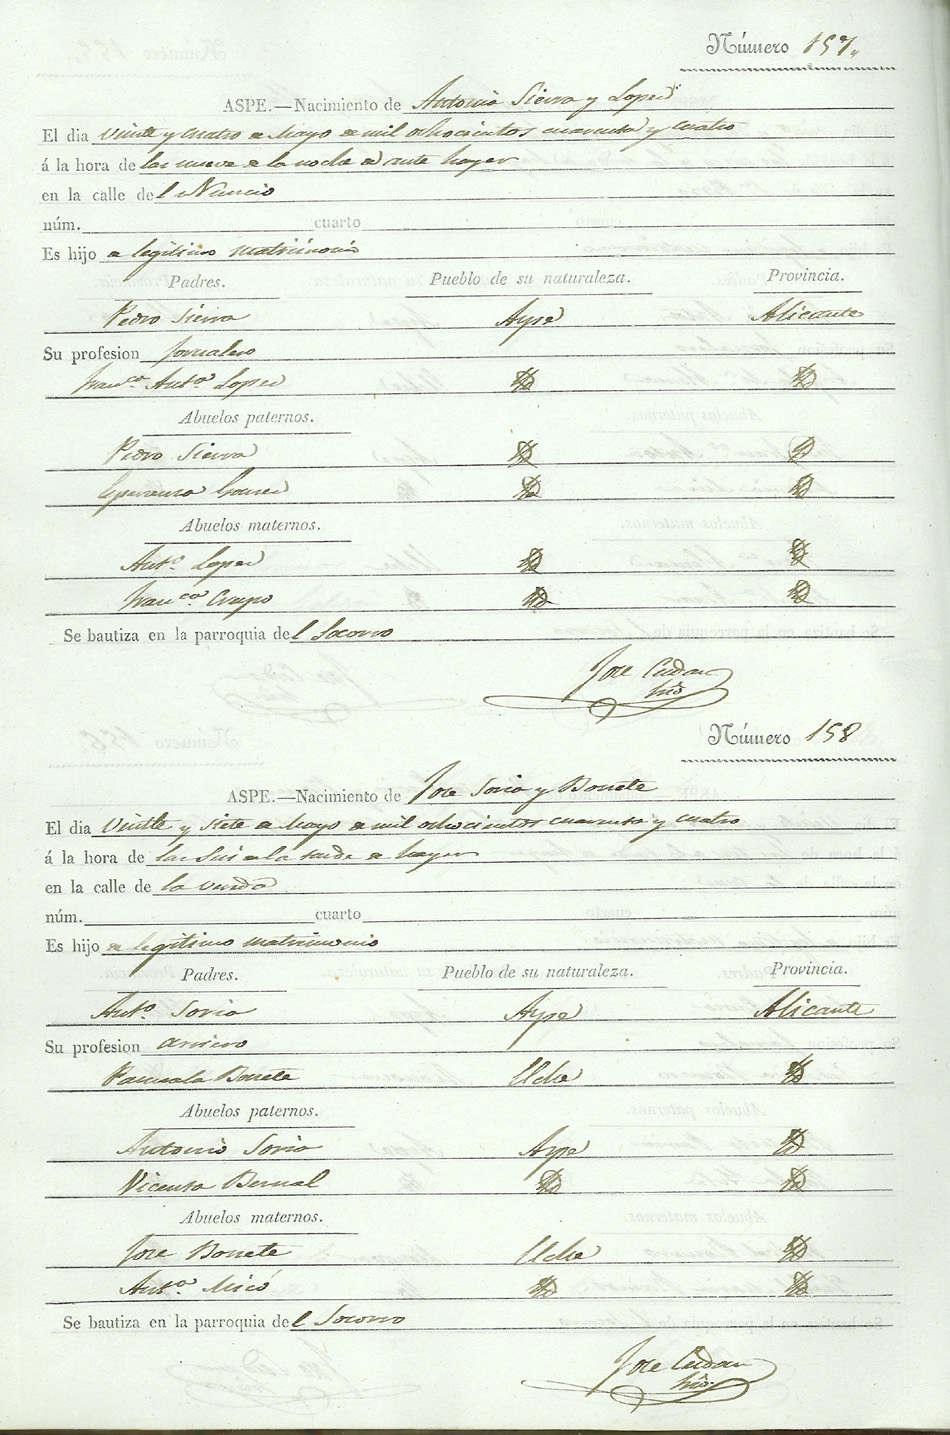 Número 157.
ASPE.—Nacimiento de Antonia Sierra y Lopez
El dia Veinte y Cuatro de Mayo de mil ochocientos cuarenta y cuatro
á la hora de las nueve de la noche de ante hayer
en la calle del Nuncio
núm. cuarto
Es hijo de legitimo matrimonio
Padres. Pueblo de su naturaleza. Provincia.
Pedro Sierra Aspe Alicante
Su profesion Jornalero
Franca. Anta. Lopez Yd Yd
Abuelos paternos.
Pedro Sierra Yd Yd
Esperanza Yd Yd
Abuelos maternos.
Anto. Lopez Yd Yd
Franca. Crespo Yd Yd
Se bautiza en la parroquia del Socorro
Jose
Número 158
ASPE.—Nacimiento de Jose Soria y Bonete
El dia Veinte y siete de Mayo de mil ochocientos cuarenta y cuatro
á la hora de las seis de la tarde de hayer
en la calle de la
núm. cuarto
Es hijo de legitimo matrimonio
Padres. Pueblo de su naturaleza. Provincia.
Anto. Soria Aspe Alicante
Su profesion arriero
Pascuala Bonete Elche Yd
Abuelos paternos.
Antonio Soria Aspe Yd
Vicenta Bernal Yd Yd
Abuelos maternos.
Jose Bonete Elche Yd
Anta. Micó Yd Yd
Se bautiza en la parroquia del Socorro
Jose